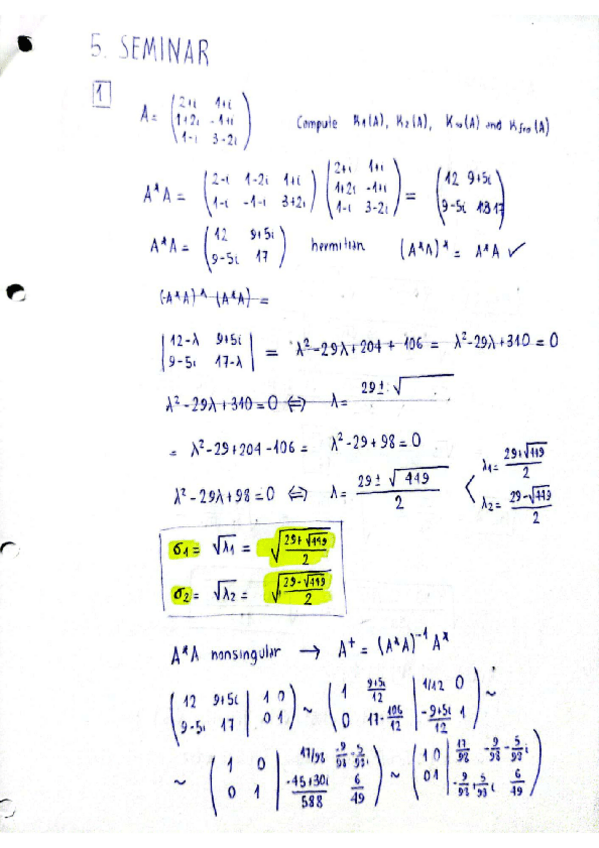 5. SEMINAR
1
A = (2+i 1+i
1+2i -1+i
1-i 3-2i) Compute K₁(A), K₂(A), K∞(A) and K_Fro(A)
A*A = (2-i 1-2i 1+i
1-i -1-i 3+2i) (2+i 1+i
1+2i -1+i
1-i 3-2i) = (12 9+5i
9-5i 17)
A*A = (12 9+5i
9-5i 17) hermitian (A*A)* = A*A ✓
(A*A)* (A*A) =
|12-λ 9+5i
9-5i 17-λ| = λ²-29λ+204 + 106 = λ²-29λ+310 = 0
λ²-29λ+310 = 0 ⇔ λ = 29±√
= λ²-29+204-106 = λ²-29+98 = 0
λ²-29λ+98 = 0 ⇔ λ = (29±√449)/2 < λ₁ = (29+√449)/2
λ₂ = (29-√449)/2
σ₁ = √λ₁ = √((29+√449)/2)
σ₂ = √λ₂ = √((29-√449)/2)
A*A nonsingular → A⁺ = (A*A)⁻¹A*
(12 9+5i | 1 0
9-5i 17 | 0 1) ~ (1 (9+5i)/12 | 1/12 0
0 17-106/12 | (-9+5i)/12 1) ~
~ (1 0 | 17/98 -9/98-5/98i
0 1 | (-45+30i)/588 6/49) ~ (1 0 | 17/98 -9/98-5/98i
0 1 | -9/98+5/98i 6/49)